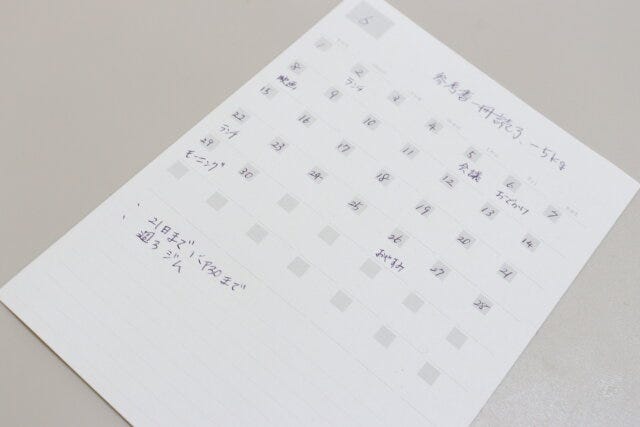 6
参考書一冊読了、-5kg
1 2 3 4 5 6 7
ランチ 会議 おでかけ
8 9 10 11 12 13 14
映画
15 16 17 18 19 20 21
22 23 24 25 26 27 28
ランチ おやすみ
29 30
モーニング
・21日までにP30まで
・週3 ジム